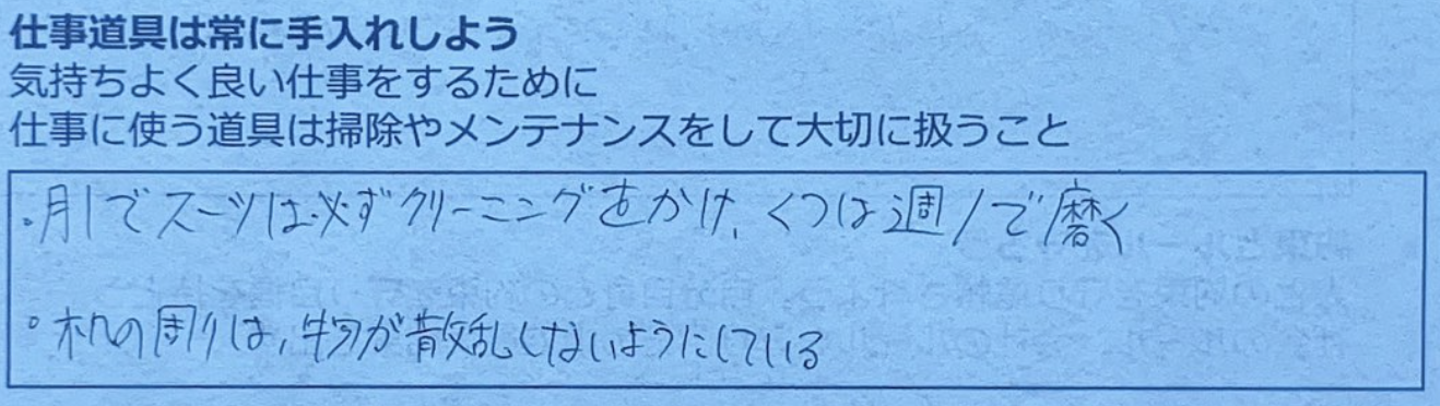 仕事道具は常に手入れしよう
気持ちよく良い仕事をするために
仕事に使う道具は掃除やメンテナンスをして大切に扱うこと
・月1でスーツは必ずクリーニングをかけ、くつは週1で磨く
・机の周りは、物が散乱しないようにしている